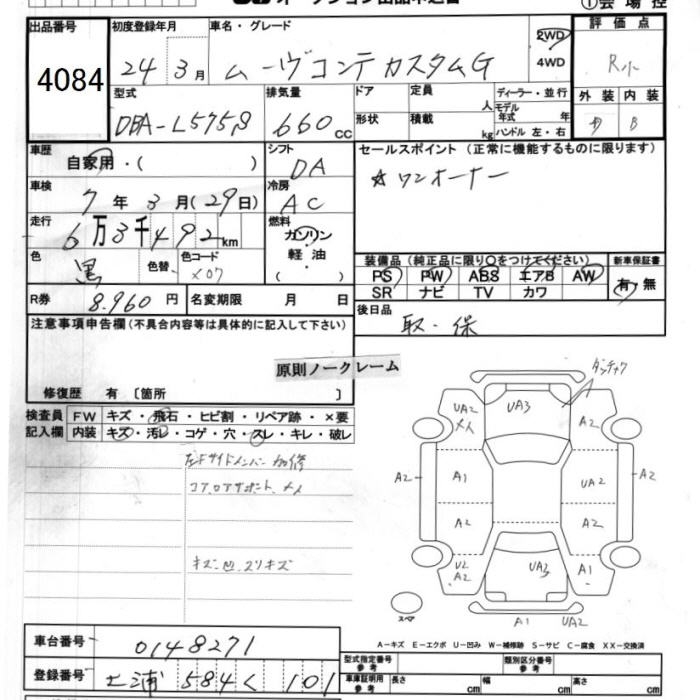 オークション出品申込書
①会場控
出品番号 4084
初度登録年月 24年 3月
車名・グレード ムーヴコンテ カスタムG
2WD
4WD
評価点 R小
型式 DBA-L575S
排気量 660 cc
ドア
形状
定員 人
積載 kg
ディーラー・並行
モデル年式 年
ハンドル 左・右
外装 内装
B
車歴 自家用・( )
シフト DA
セールスポイント (正常に機能するものに限ります)
☆ワンオーナー
車検 7年 3月(29日)
冷房 AC
走行 6万3千492km
燃料 ガソリン
軽油
( )
色 黒
色替
色コード X07
装備品 (純正品に限り○をつけてください)
新車保証書
PS PW ABS エアB AW
SR ナビ TV カワ
有・無
R券 8.960円
名変期限 月 日
後日品 取・保
注意事項申告欄(不具合内容等は具体的に記入して下さい)
原則ノークレーム
修復歴 有 〔箇所 〕
検査員記入欄
FW キズ・飛石・ヒビ割・リペア跡・×要
内装 キズ・汚レ・コゲ・穴・スレ・キレ・破レ
コアロアサポート メイ
キズ・凹、スリキズ
UA2
UA3
A2
A2
A1
UA2
A2
A2
A2
A2
U2
A2
UA3
A1
スペア
A1 UA2
A-キズ E-エクボ U-凹み W-補修跡 S-サビ C-腐食 XX-交換済
車台番号 0148271
登録番号 土浦 584 く 101
型式指定番号 参考
類別区分番号 参考
車庫証明用 参考
長さ cm
幅 cm
高さ cm